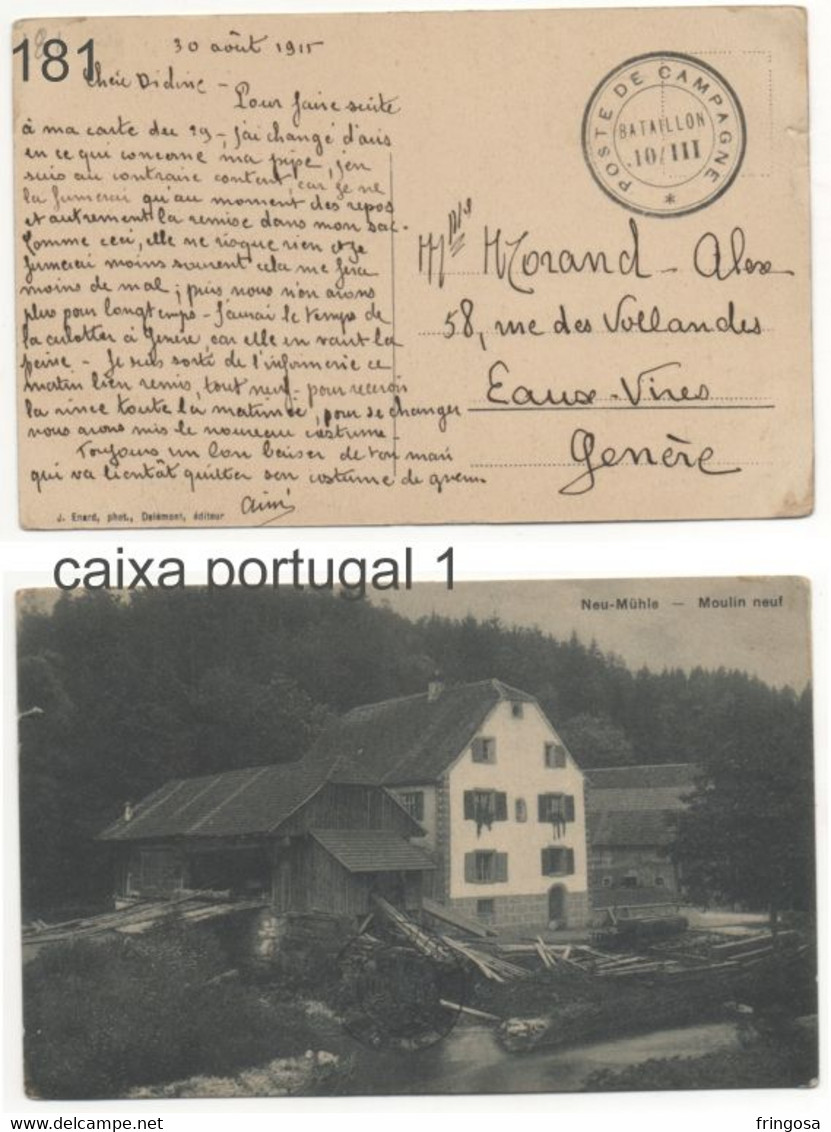 181
30 août 1915
Chère Didine -
Pour faire suite
à ma carte du 29 - j'ai changé d'avis
en ce qui concerne ma pipe, j'en
suis au contraire content, car je ne
la fumerai qu'au moment des repos
et autrement la remise dans mon sac -
Comme ceci, elle ne risque rien et je
fumerai moins souvent cela me fera
moins de mal ; puis nous n'en avons
plus pour longtemps - J'aurai le temps de
la culotter à Genève, car elle en vaut la
peine - Je suis sorti de l'infirmerie ce
matin bien remis, tout neuf - pour recevoir
la rince toute la matinée, pour se changer
nous avons mis le nouveau costume -
Toujours un bon baiser de ton mari
qui va bientôt quitter son costume de
Aimé
J. Enard, phot., Delémont, éditeur
POSTE DE CAMPAGNE
BATAILLON
10/III
*
Morand - Alex
58, rue des Vollandes
Eaux-Vives
Genève
caixa portugal 1
Neu-Mühle — Moulin neuf
fringosa